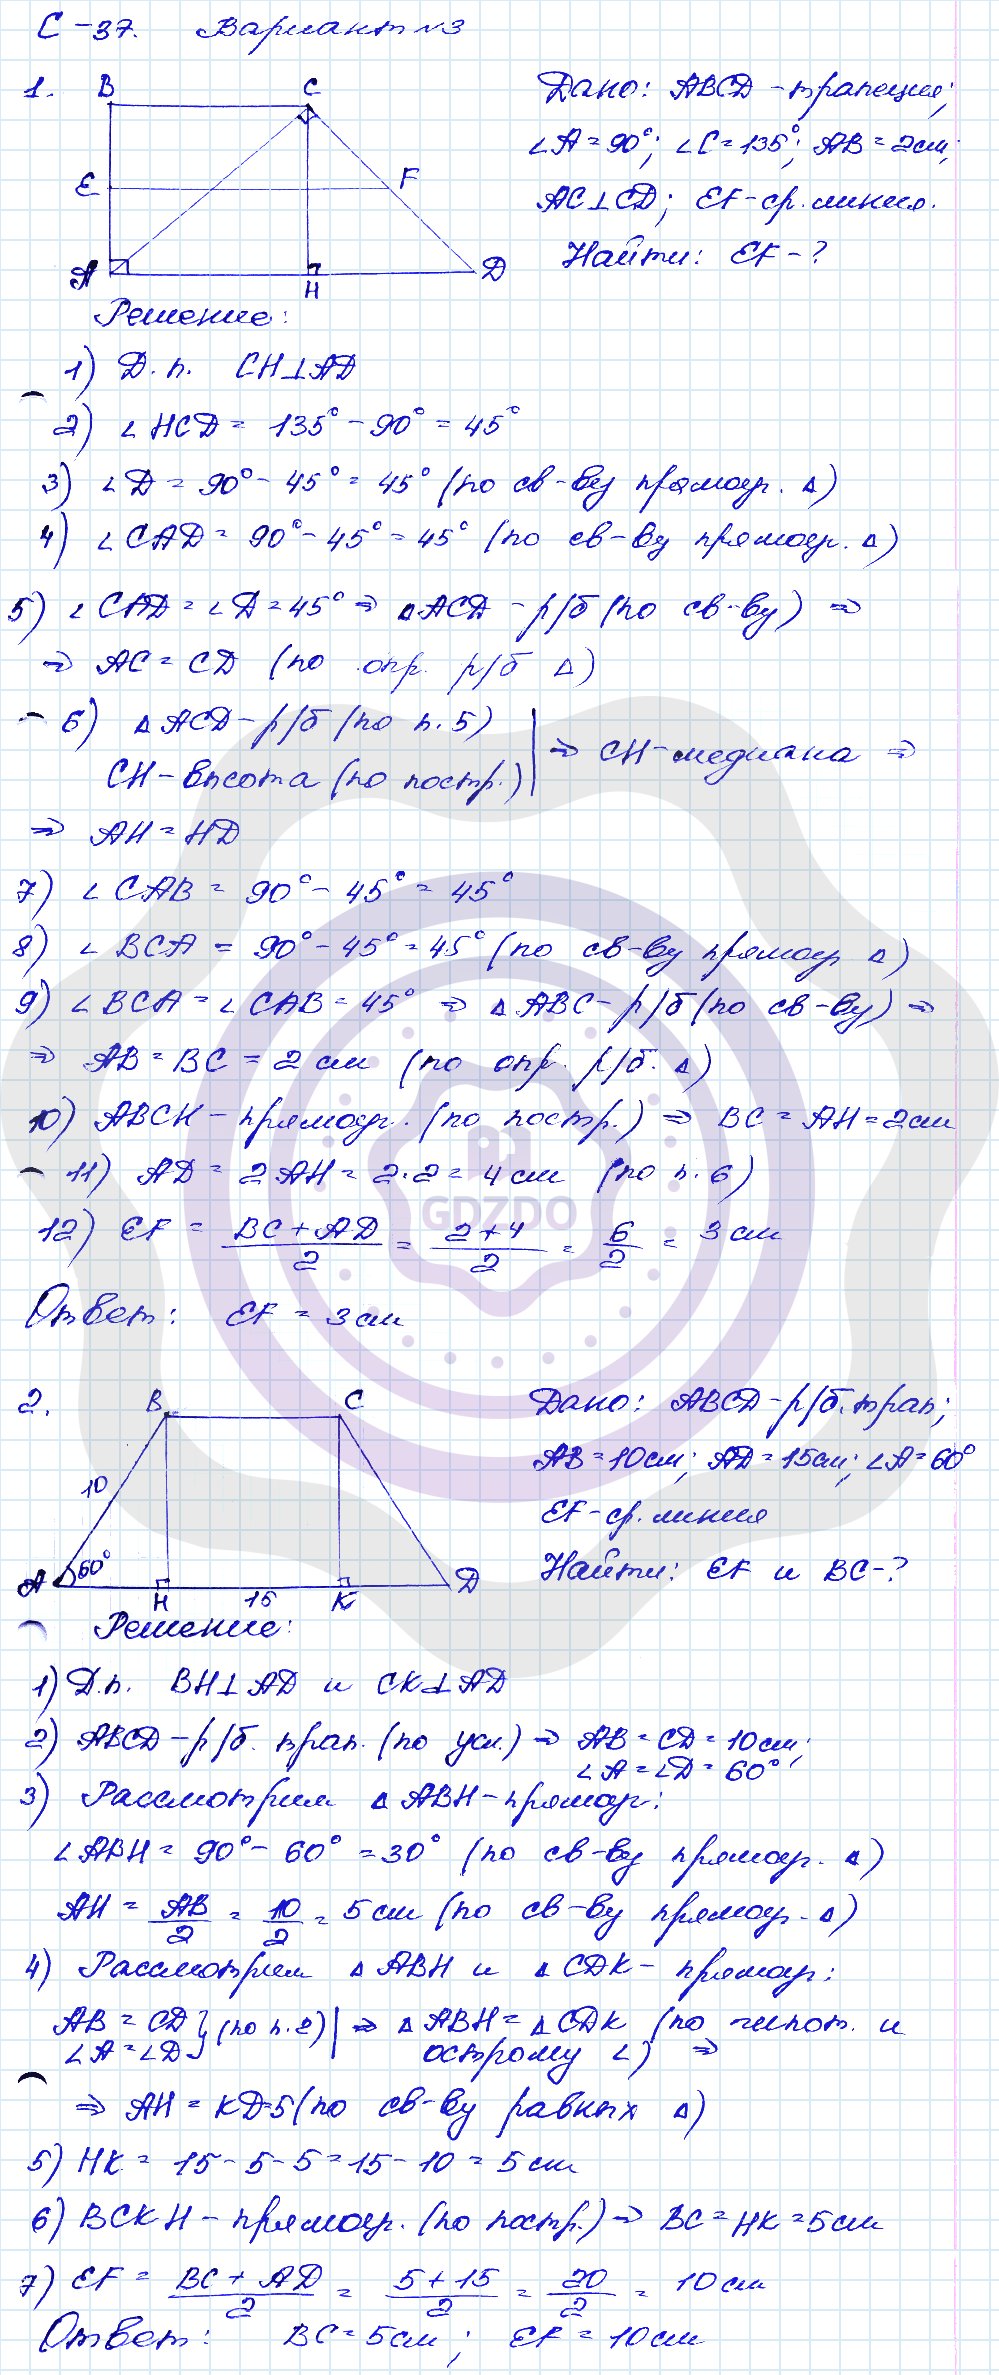 С-37. Вариант №3
1. B C
E F
A H D
Дано: ABCD - трапеция;
∠A = 90°; ∠C = 135°; AB = 2см;
AC⊥CD; EF - ср. линия.
Найти: EF - ?
Решение:
1) Д.п. CH⊥AD
2) ∠HCD = 135° - 90° = 45°
3) ∠D = 90° - 45° = 45° (по св-ву прямоуг. Δ)
4) ∠CAD = 90° - 45° = 45° (по св-ву прямоуг. Δ)
5) ∠CAD = ∠D = 45° ⇒ ΔACD - р/б (по св-ву) ⇒
⇒ AC = CD (по опр. р/б Δ)
6) ΔACD - р/б (по п.5)
CH - высота (по постр.) | ⇒ CH - медиана ⇒
⇒ AH = HD
7) ∠CAB = 90° - 45° = 45°
8) ∠BCA = 90° - 45° = 45° (по св-ву прямоуг Δ)
9) ∠BCA = ∠CAB = 45° ⇒ ΔABC - р/б (по св-ву) ⇒
⇒ AB = BC = 2 см (по опр. р/б. Δ)
10) ABCH - прямоуг. (по постр.) ⇒ BC = AH = 2см
11) AD = 2AH = 2·2 = 4 см (по п.6)
GDZDO
12) EF = (BC + AD)/2 = (2+4)/2 = 6/2 = 3 см
Ответ: EF = 3 см
2. B C
10
A 60° H 15 K D
Дано: ABCD - р/б. трап;
AB = 10см; AD = 15см; ∠A = 60°
EF - ср. линия
Найти: EF и BC - ?
Решение:
1) Д.п. BH⊥AD и CK⊥AD
2) ABCD - р/б. трап. (по усл.) ⇒ AB = CD = 10см;
∠A = ∠D = 60°;
3) Рассмотрим ΔABH - прямоуг:
∠ABH = 90° - 60° = 30° (по св-ву прямоуг. Δ)
AH = AB/2 = 10/2 = 5 см (по св-ву прямоуг. Δ)
4) Рассмотрим ΔABH и ΔCDK - прямоуг:
AB = CD
∠A = ∠D } (по п.2) | ⇒ ΔABH = ΔCDK (по гипот. и
острому ∠) ⇒
⇒ AH = KD = 5 (по св-ву равных Δ)
5) HK = 15 - 5 - 5 = 15 - 10 = 5 см
6) BCKH - прямоуг. (по постр.) ⇒ BC = HK = 5 см
7) EF = (BC + AD)/2 = (5 + 15)/2 = 20/2 = 10 см
Ответ: BC = 5см; EF = 10см